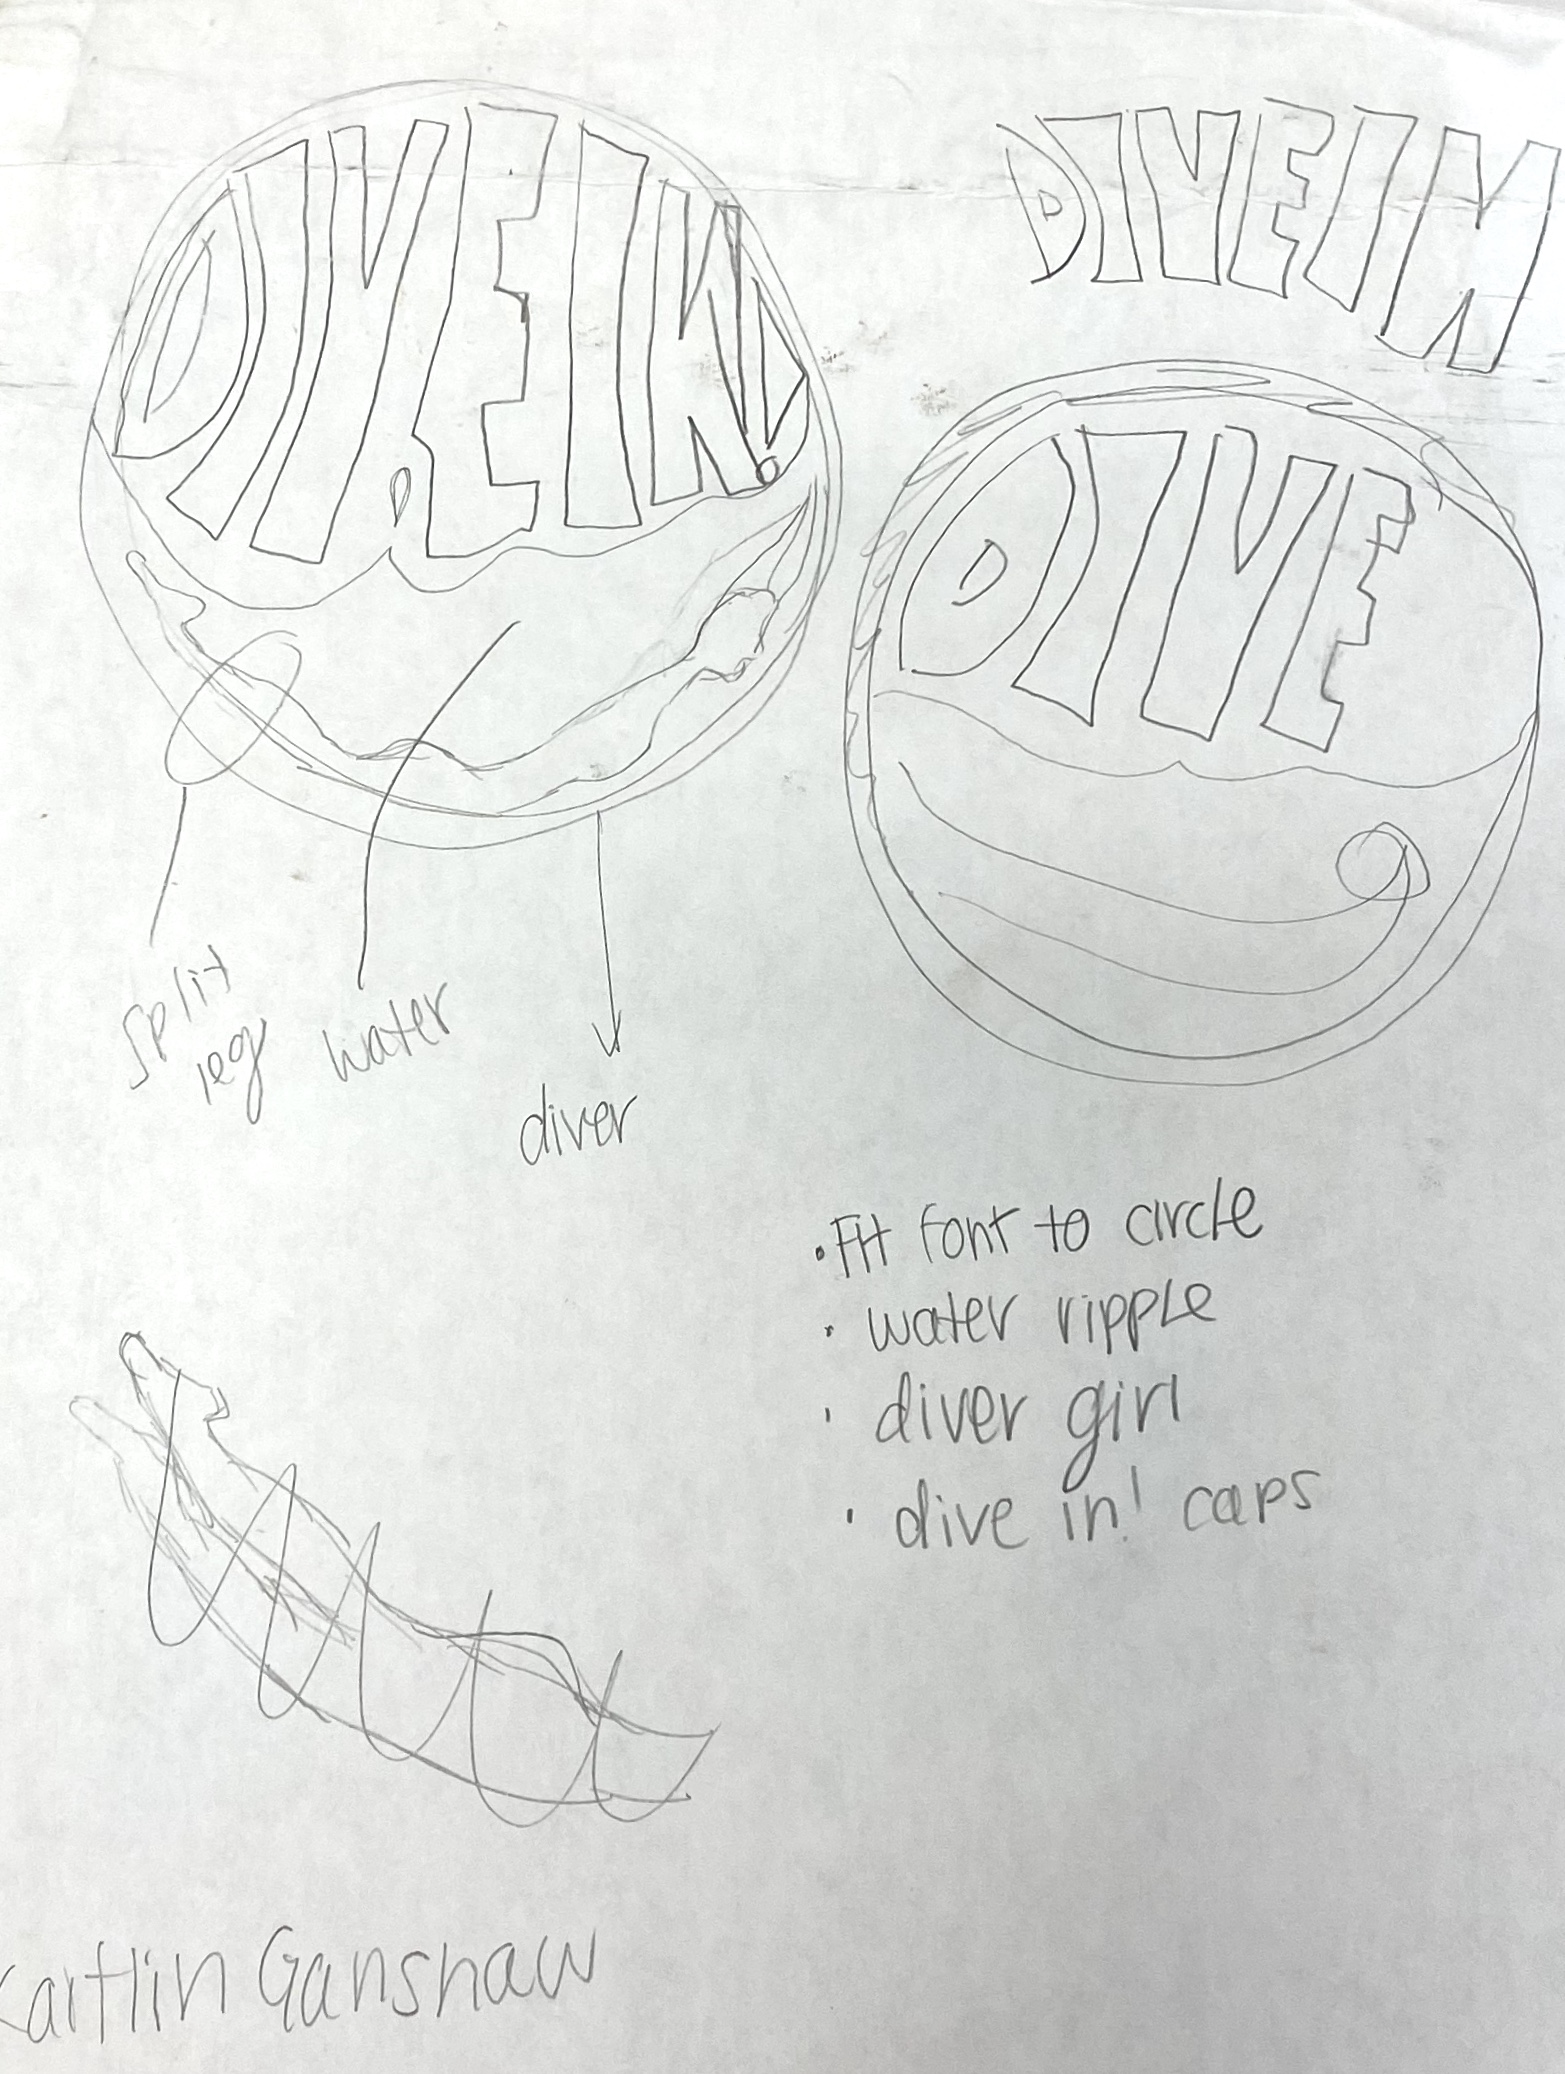 DIVE IN!
DIVE IN
DIVE
split
leg
water
diver
• Fit font to circle
• water ripple
• diver girl
• dive in! caps
Kaitlin Ganshaw